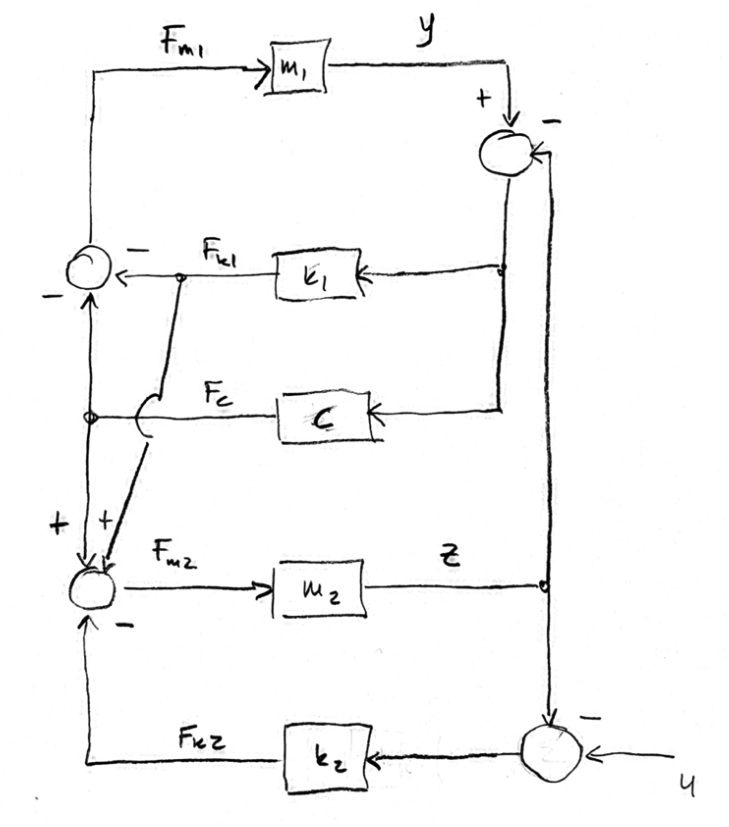 Fm1
m1
y
+
-
-
Fk1
k1
-
Fc
C
+ +
Fm2
m2
z
-
-
Fk2
k2
u